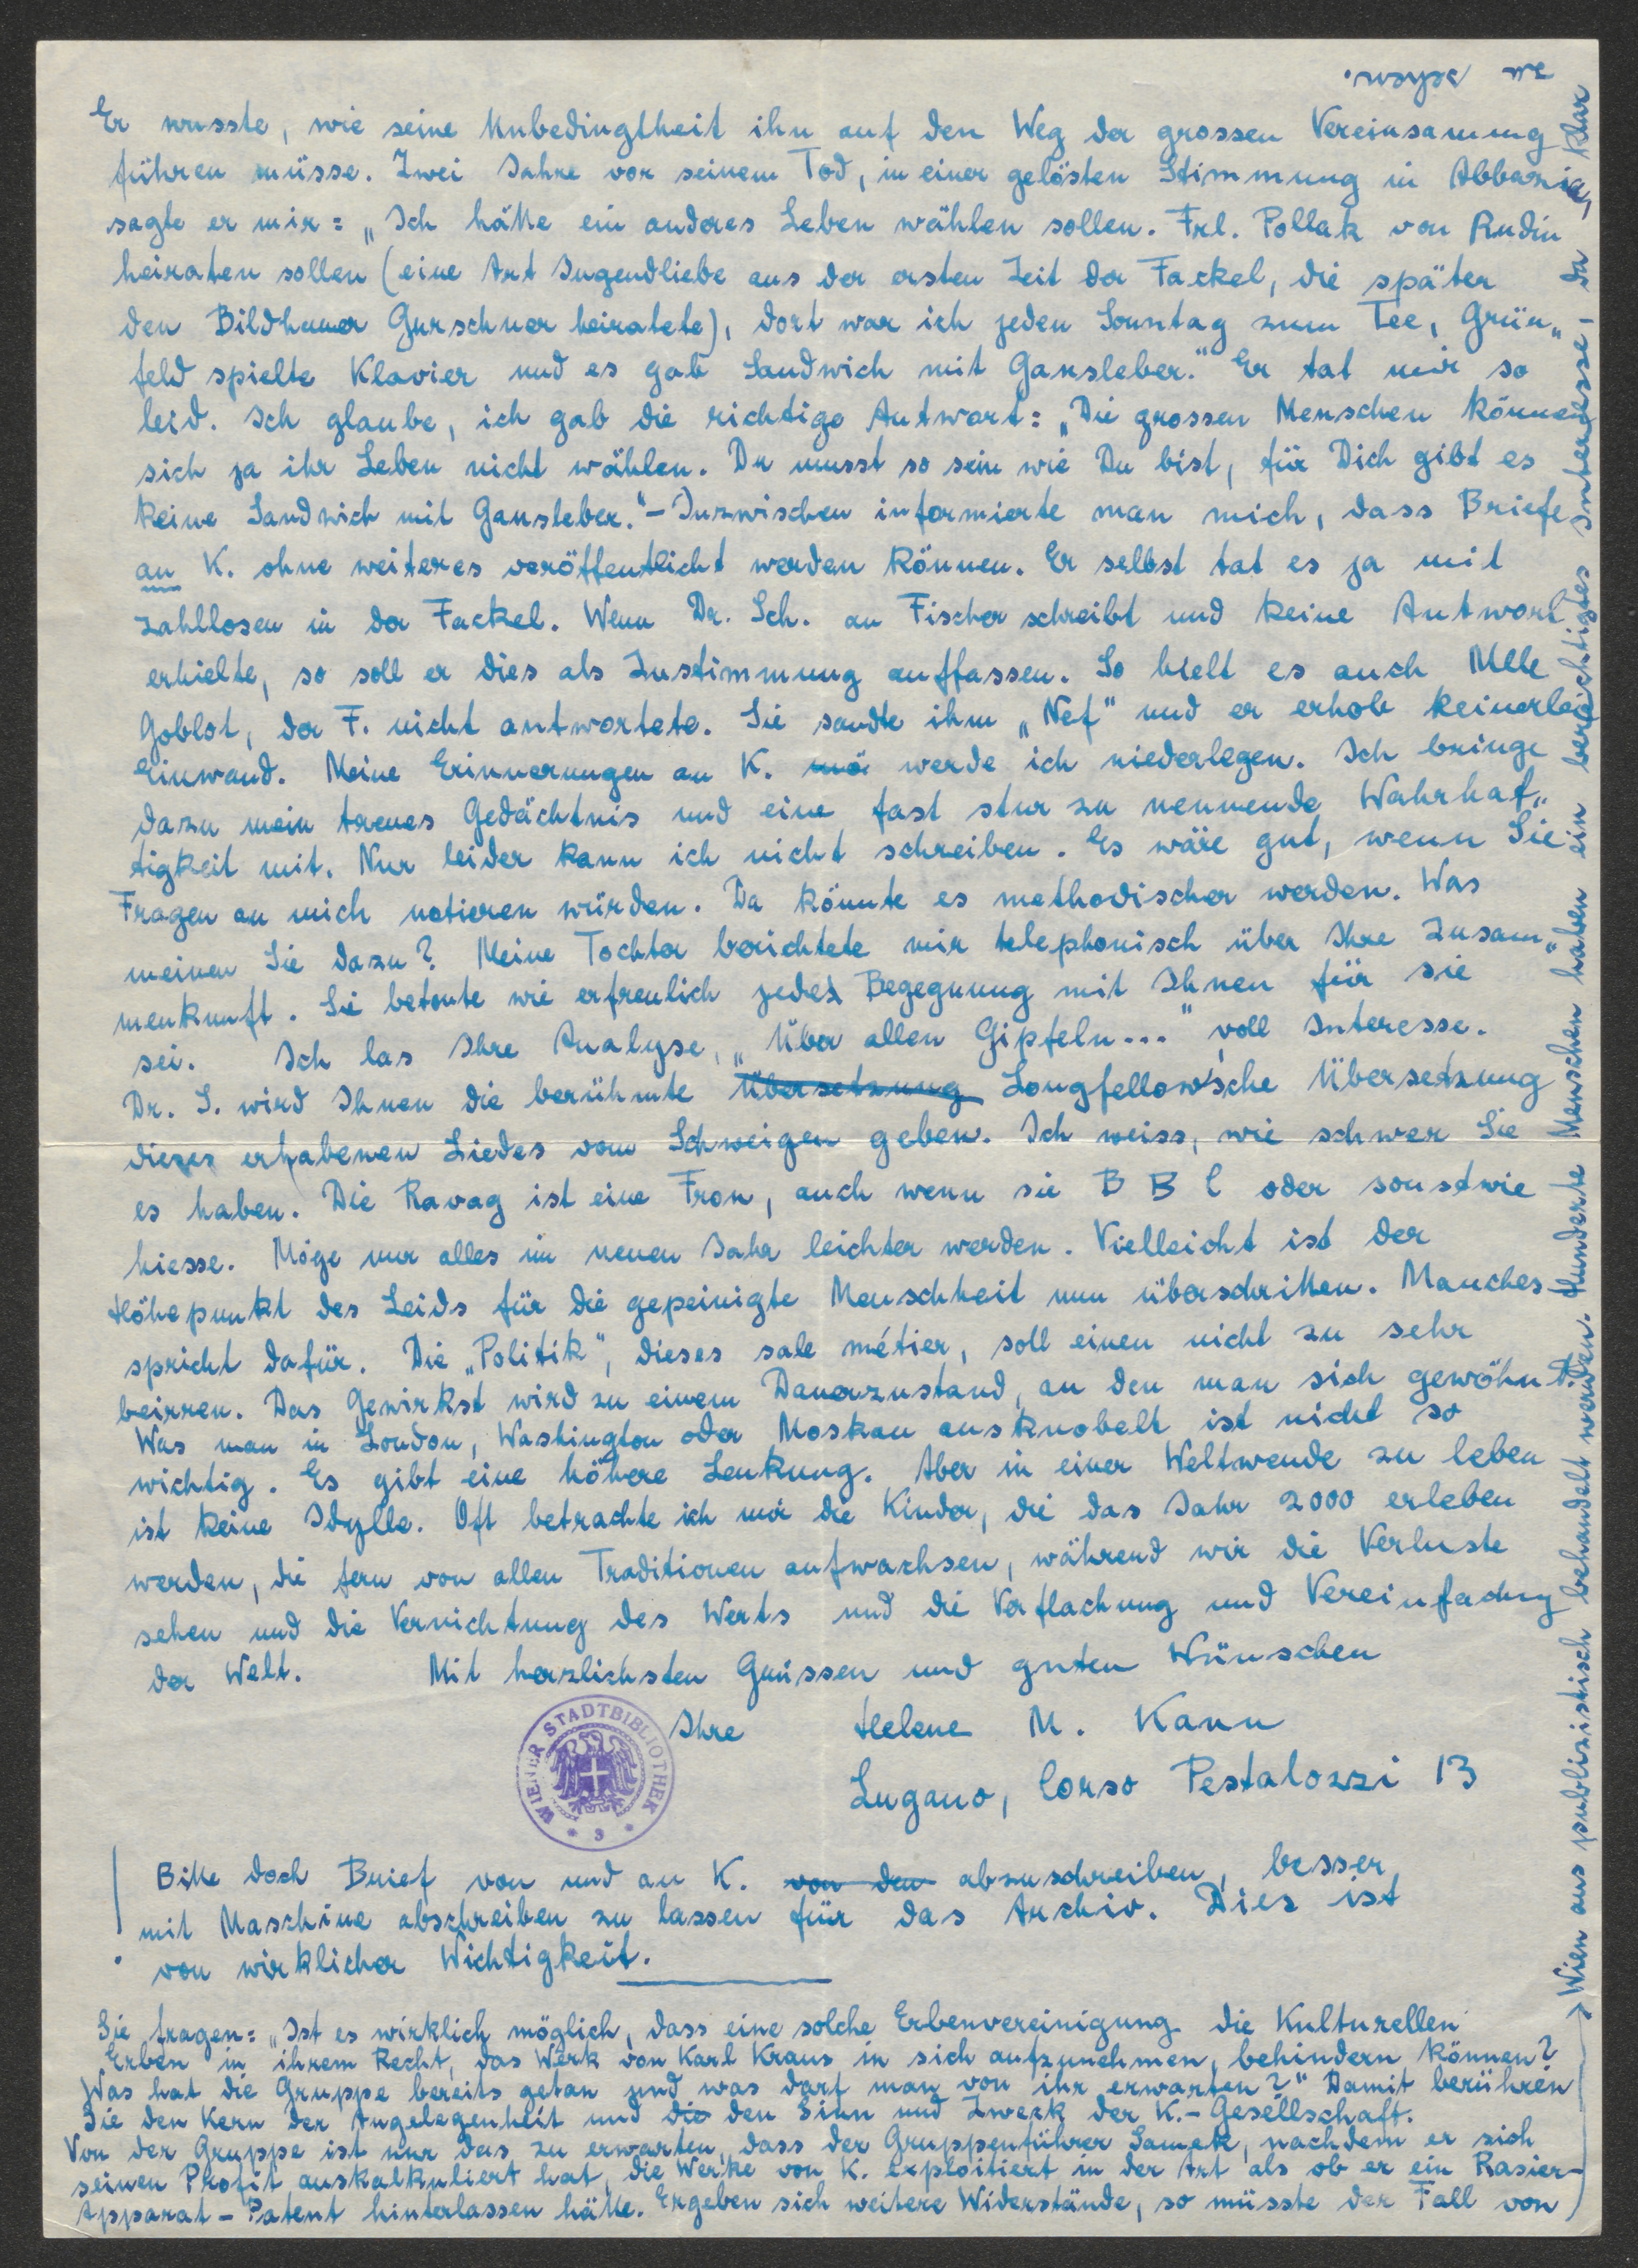 Er wusste, wie seine Unbedingtheit ihn auf den Weg der grossen Vereinsamung
führen müsse. Zwei Jahre vor seinem Tod, in einer gelösten Stimmung in Abbazia,
sagte er mir: „Ich hätte ein anderes Leben wählen sollen. Frl. Pollak von Rudin
heiraten sollen (eine Art Jugendliebe aus der ersten Zeit der Fackel, die später
den Bildhauer Gurschner heiratete), dort war ich jeden Sonntag zum Tee, Grün„
feld spielte Klavier und es gab Sandwich mit Gansleber." Er tat mir so
leid. Ich glaube, ich gab die richtige Antwort: „Die grossen Menschen können
sich ja ihr Leben nicht wählen. Du musst so sein wie Du bist, für Dich gibt es
keine Sandwich mit Gansleber." – Inzwischen informierte man mich, dass Briefe
an K. ohne weiteres veröffentlicht werden können. Er selbst tat es ja mit
zahllosen in der Fackel. Wenn Dr. Sch. an Fischer schreibt und keine Antwort
erhielte, so soll er dies als Zustimmung auffassen. So hielt es auch Mlle
Goblot, der F. nicht antwortete. Sie sandte ihm „Nef" und er erhob keinerlei
Einwand. Meine Erinnerungen an K. mö werde ich niederlegen. Ich bringe
dazu mein treues Gedächtnis und eine fast stur zu nennende Wahrhaf„
tigkeit mit. Nur leider kann ich nicht schreiben. Es wäre gut, wenn Sie
Fragen an mich notieren würden. Da könnte es methodischer werden. Was
meinen Sie dazu? Meine Tochter berichtete mir telephonisch über Ihre Zusam„
menkunft. Sie betonte wie erfreulich jedes Begegnung mit Ihnen für sie
sei. Ich las Ihre Analyse, „Über allen Gipfeln..." voll Interesse.
Dr. S. wird Ihnen die berühmte Übersetzung Longfellow'sche Übersetzung
dieses erhabenen Liedes vom Schweigen geben. Ich weiss, wie schwer Sie
es haben. Die Ravag ist eine Fron, auch wenn sie B B C oder sonstwie
hiesse. Möge nur alles im neuen Jahr leichter werden. Vielleicht ist der
Höhepunkt des Leids für die gepeinigte Menschheit nun überschritten. Manches
spricht dafür. Die „Politik", dieses sale métier, soll einen nicht zu sehr
beirren. Das Gewirkst wird zu einem Dauerzustand, an den man sich gewöhnt.
Was man in London, Washington oder Moskau ausknobelt ist nicht so
wichtig. Es gibt eine höhere Lenkung. Aber in einer Weltwende zu leben
ist keine Idylle. Oft betrachte ich mir die Kinder, die das Jahr 2000 erleben
werden, die fern von allen Traditionen aufwachsen, während wir die Verluste
sehen und die Vernichtung des Werts und die Verflachung und Vereinfachung
der Welt. Mit herzlichsten Grüssen und guten Wünschen
Ihre Helene M. Kann
Lugano, Corso Pestalozzi 13
WIENER STADTBIBLIOTHEK
Bitte doch Brief von und an K. von den abzuschreiben, besser,
mit Maschine abschreiben zu lassen für das Archiv. Dies ist
von wirklicher Wichtigkeit.
Sie fragen: „Ist es wirklich möglich, dass eine solche Erbenvereinigung die Kulturellen
Erben in ihrem Recht, das Werk von Karl Kraus in sich aufzunehmen, behindern können?
Was hat die Gruppe bereits getan und was darf man von ihr erwarten?" Damit berühren
Sie den Kern der Angelegenheit und die den Sinn und Zweck der K.-Gesellschaft.
Von der Gruppe ist nur das zu erwarten, dass der Gruppenführer Samek, nachdem er sich
seinen Profit auskalkuliert hat, die Werke von K. exploitiert in der Art als ob er ein Rasier-
Apparat-Patent hinterlassen hätte. Ergeben sich weitere Widerstände, so müsste der Fall von
Wien aus publizistisch behandelt werden. Hunderte Menschen haben ein berechtigtes Interesse, da klar
zu sehen.